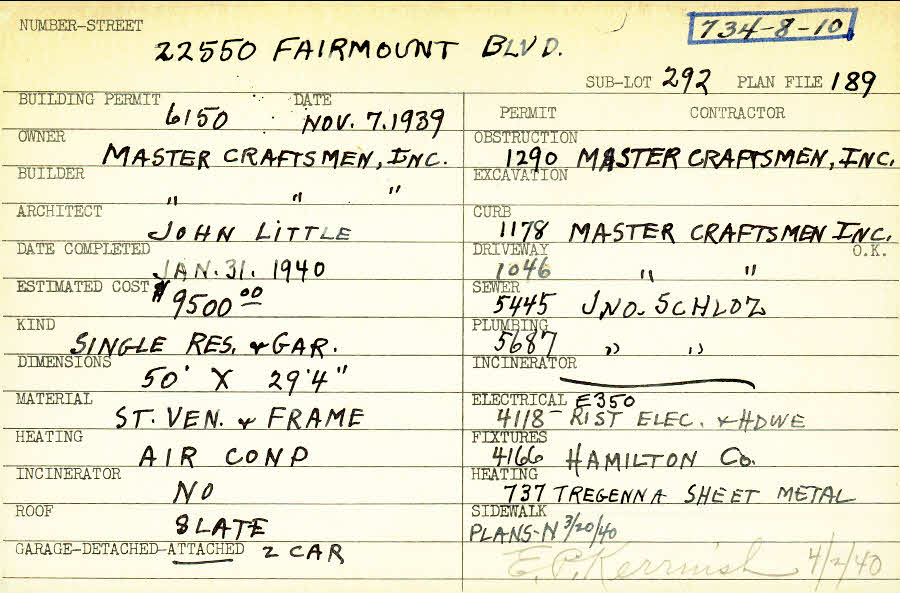 NUMBER-STREET
734-8-10
22550 FAIRMOUNT BLVD.
SUB-LOT 292 PLAN FILE 189
BUILDING PERMIT 6150 DATE NOV. 7. 1939
OWNER MASTER CRAFTSMEN, INC.
BUILDER " " "
ARCHITECT JOHN LITTLE
DATE COMPLETED JAN. 31. 1940
ESTIMATED COST $9500 00
KIND SINGLE RES. & GAR.
DIMENSIONS 50' X 29'4"
MATERIAL ST. VEN. & FRAME
HEATING AIR COND
INCINERATOR NO
ROOF SLATE
GARAGE-DETACHED-ATTACHED 2 CAR
PERMIT CONTRACTOR
OBSTRUCTION 1290 MASTER CRAFTSMEN, INC.
EXCAVATION
CURB 1178 MASTER CRAFTSMEN INC.
DRIVEWAY 1046 " " O.K.
SEWER 5445 JNO. SCHLOZ
PLUMBING 5687 " "
INCINERATOR
ELECTRICAL E350
4118- RIST ELEC. & HDWE
FIXTURES 4166 HAMILTON Co.
HEATING 737 TREGENNA SHEET METAL
SIDEWALK
PLANS-N 3/20/40
E.P. Kerruish 4/2/40